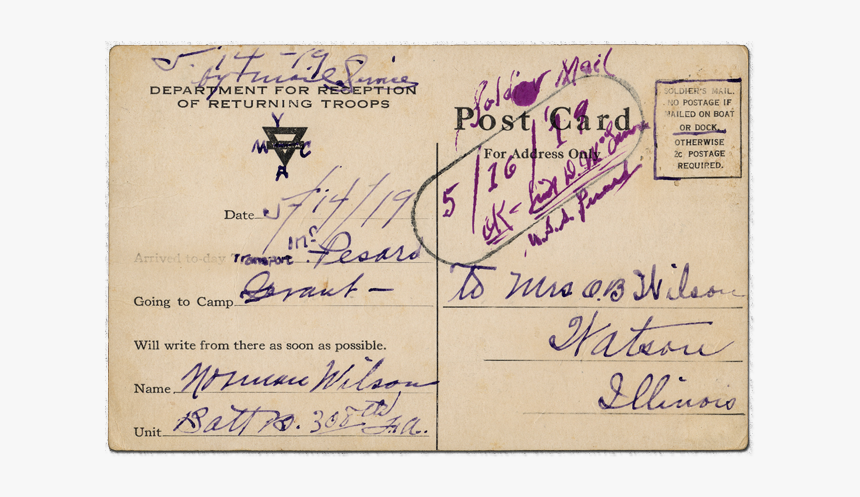 5-14-19
by Service
DEPARTMENT FOR RECEPTION
OF RETURNING TROOPS
Y
M C
A
Date 5/14/19
Arrived to-day Transport
Going to Camp Grant -
Will write from there as soon as possible.
Name Norman Wilson
Unit Batt D. 308th F.A.
Soldier Mail
Post Card
For Address Only
5/16/'19
OK-
U.S.S.
SOLDIER'S MAIL.
NO POSTAGE IF
MAILED ON BOAT
OR DOCK.
OTHERWISE
2c POSTAGE
REQUIRED.
To Mrs O.B Wilson
Watson
Illinois